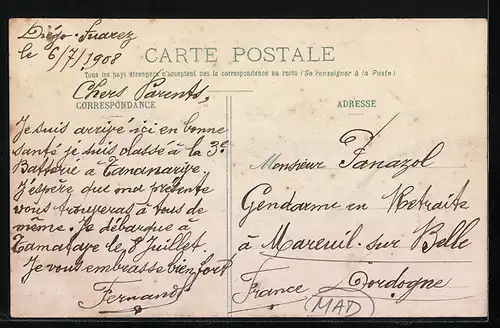 Diégo-Suarez
le 6/7/1908
CARTE POSTALE
Tous les pays étrangers n'acceptent pas la correspondance au recto (Se renseigner à la Poste)
Chers Parents,
CORRESPONDANCE
Je suis arrivé ici en bonne
santé je suis classé à la 3e
Batterie à Tananarive.
J'espère que ma présente
vous trouveras à tous de
même. Je débarque à
Tamatave le 8 Juillet.
Je vous embrasse bien fort
Fernand
ADRESSE
Monsieur Fanazol
Gendarme en Retraite
à Mareuil-sur Belle
France Dordogne
(MAD)